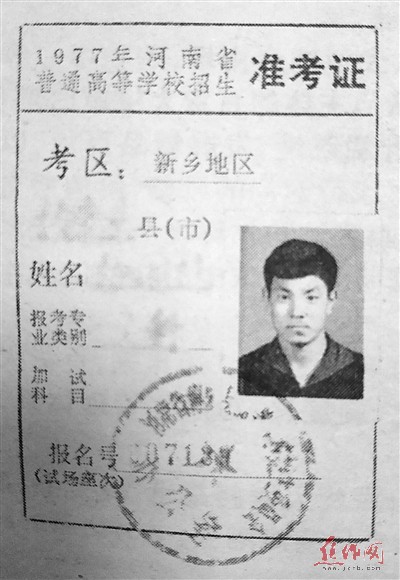 1977年河南省
普通高等学校招生
准考证
考区：新乡地区
县(市)
姓名
报考专
业类别
加试
科目
报名号
(试场座次)
焦作网
www.jzrb.com